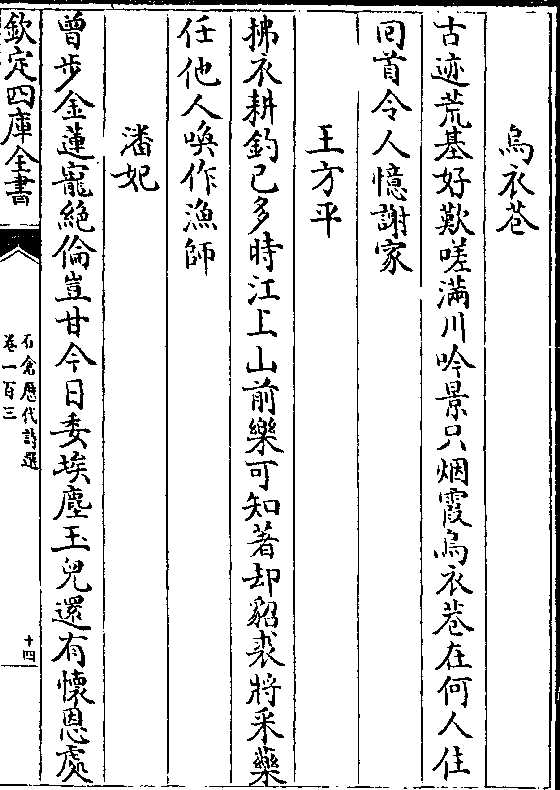 烏衣巷
古迹荒基好歎嗟滿川吟景只烟霞烏衣巷在何人住
囘首令人憶謝家
王方平
拂衣耕釣已多時江上山前樂可知著却貂裘將采藥
任他人喚作漁師
潘妃
曾步金蓮寵絶倫豈甘今日委埃塵玉兒還有懷恩處
欽定四庫全書
石倉歴代詩選
卷一百三
十四